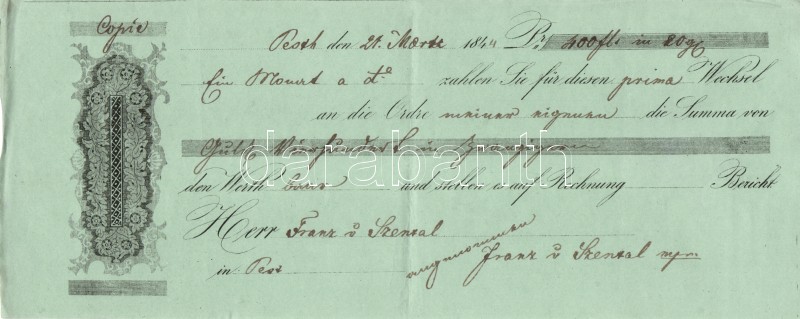 Copie
Pesth den 21. Maerz 184 Pr 400 fl. in 20gr
Ein Monat a do zahlen Sie für diesen prima Wechsel
an die Ordre meiner eigenen die Summa von
Guld. Vierhundert in Zwanzigern
den Werth baar und stellen es auf Rechnung Bericht
Herr Franz v Szental
in Pest
angenommen
Franz v Szental mpr
darabanth